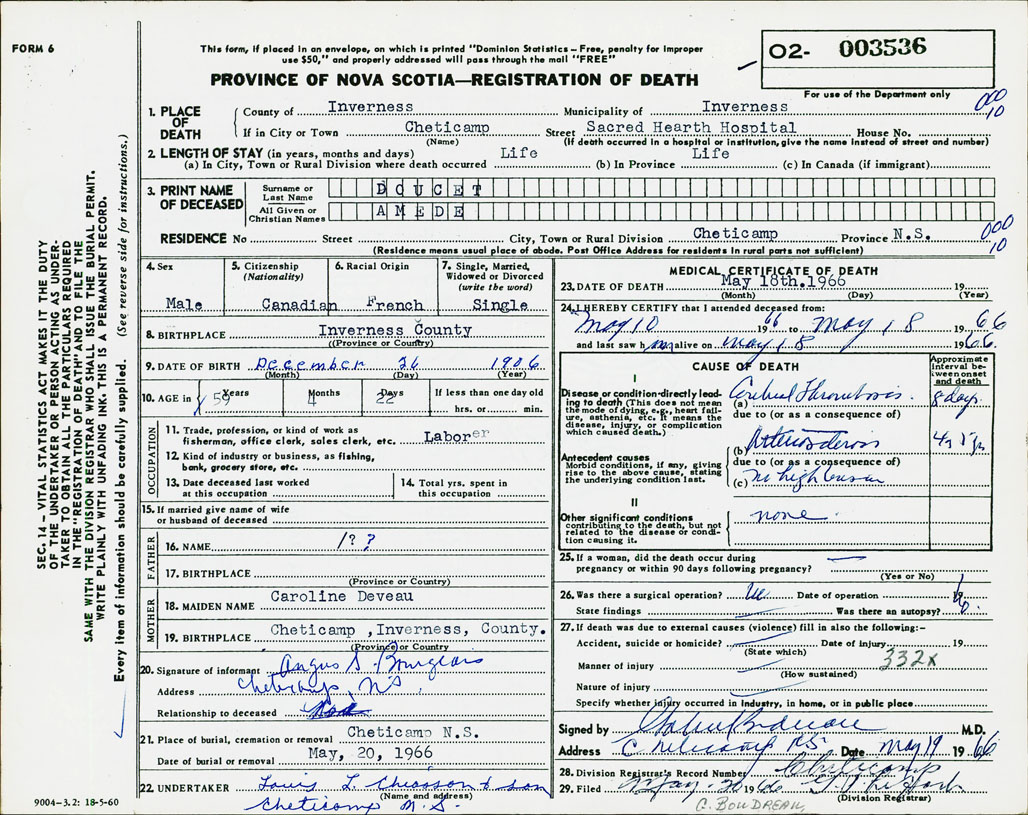 FORM 6
This form, if placed in an envelope, on which is printed "Dominion Statistics – Free, penalty for improper
use $50," and properly addressed will pass through the mail "FREE"
PROVINCE OF NOVA SCOTIA—REGISTRATION OF DEATH
02- 003536
For use of the Department only
000
10
1. PLACE OF DEATH
County of Inverness Municipality of Inverness
If in City or Town Cheticamp Street Sacred Hearth Hospital House No.
(Name) (If death occurred in a hospital or institution, give the name instead of street and number)
2. LENGTH OF STAY (in years, months and days)
(a) In City, Town or Rural Division where death occurred Life (b) In Province Life (c) In Canada (if immigrant)
3. PRINT NAME OF DECEASED
Surname or Last Name DOUCET
All Given or Christian Names AMEDE
000
10
RESIDENCE No Street City, Town or Rural Division Cheticamp Province N.S.
(Residence means usual place of abode. Post Office Address for residents in rural parts not sufficient)
4. Sex Male
5. Citizenship (Nationality) Canadian
6. Racial Origin French
7. Single, Married, Widowed or Divorced (write the word) Single
8. BIRTHPLACE Inverness County
(Province or Country)
9. DATE OF BIRTH December 26 1906
(Month) (Day) (Year)
10. AGE in 59 Years 4 Months 22 Days If less than one day old
hrs. or min.
OCCUPATION
11. Trade, profession, or kind of work as
fisherman, office clerk, sales clerk, etc. Laborer
12. Kind of industry or business, as fishing,
bank, grocery store, etc.
13. Date deceased last worked
at this occupation
14. Total yrs. spent in
this occupation
15. If married give name of wife
or husband of deceased
FATHER
16. NAME /? ?
17. BIRTHPLACE
(Province or Country)
MOTHER
18. MAIDEN NAME Caroline Deveau
19. BIRTHPLACE Cheticamp ,Inverness, County.
(Province or Country)
20. Signature of informant Angus S. Bourgeois
Address Cheticamp, NS,
Relationship to deceased
21. Place of burial, cremation or removal Cheticamp N.S.
Date of burial or removal May, 20, 1966
22. UNDERTAKER Louis L. Chiasson & son
(Name and address)
Cheticamp N.S.
9004-3.2: 18-5-60
MEDICAL CERTIFICATE OF DEATH
23. DATE OF DEATH May 18th.1966 19
(Month) (Day) (Year)
24. I HEREBY CERTIFY that I attended deceased from:
May 10 1966 to May 18 1966
and last saw him alive on May 18 1966.
CAUSE OF DEATH
Approximate interval between onset and death
I
Disease or condition directly leading to death (This does not mean the mode of dying, e.g., heart failure, asthenia, etc. It means the disease, injury, or complication which caused death.)
(a) Cerebral Thrombosis. 8 days
due to (or as a consequence of)
Antecedent causes
Morbid conditions, if any, giving rise to the above cause, stating the underlying condition last.
(b) Arteriosclerosis
due to (or as a consequence of)
(c)
II
Other significant conditions
contributing to the death, but not related to the disease or condition causing it.
none
25. If a woman, did the death occur during
pregnancy or within 90 days following pregnancy?
(Yes or No)
26. Was there a surgical operation? Date of operation
State findings Was there an autopsy?
27. If death was due to external causes (violence) fill in also the following:-
Accident, suicide or homicide? Date of injury 19
(State which)
332x
Manner of injury
(How sustained)
Nature of injury
Specify whether injury occurred in industry, in home, or in public place
Signed by M.D.
Address Cheticamp NS Date May 19 1966
28. Division Registrar's Record Number Cheticamp
29. Filed May 20 1966
(Division Registrar)
G. BOUDREAU
SEC. 14 – VITAL STATISTICS ACT MAKES IT THE DUTY
OF THE UNDERTAKER OR PERSON ACTING AS UNDERTAKER
TO OBTAIN ALL THE PARTICULARS REQUIRED
IN THE "REGISTRATION OF DEATH" AND TO FILE THE
SAME WITH THE DIVISION REGISTRAR WHO SHALL ISSUE THE BURIAL PERMIT.
WRITE PLAINLY WITH UNFADING INK. THIS IS A PERMANENT RECORD.
Every item of information should be carefully supplied. (See reverse side for instructions.)